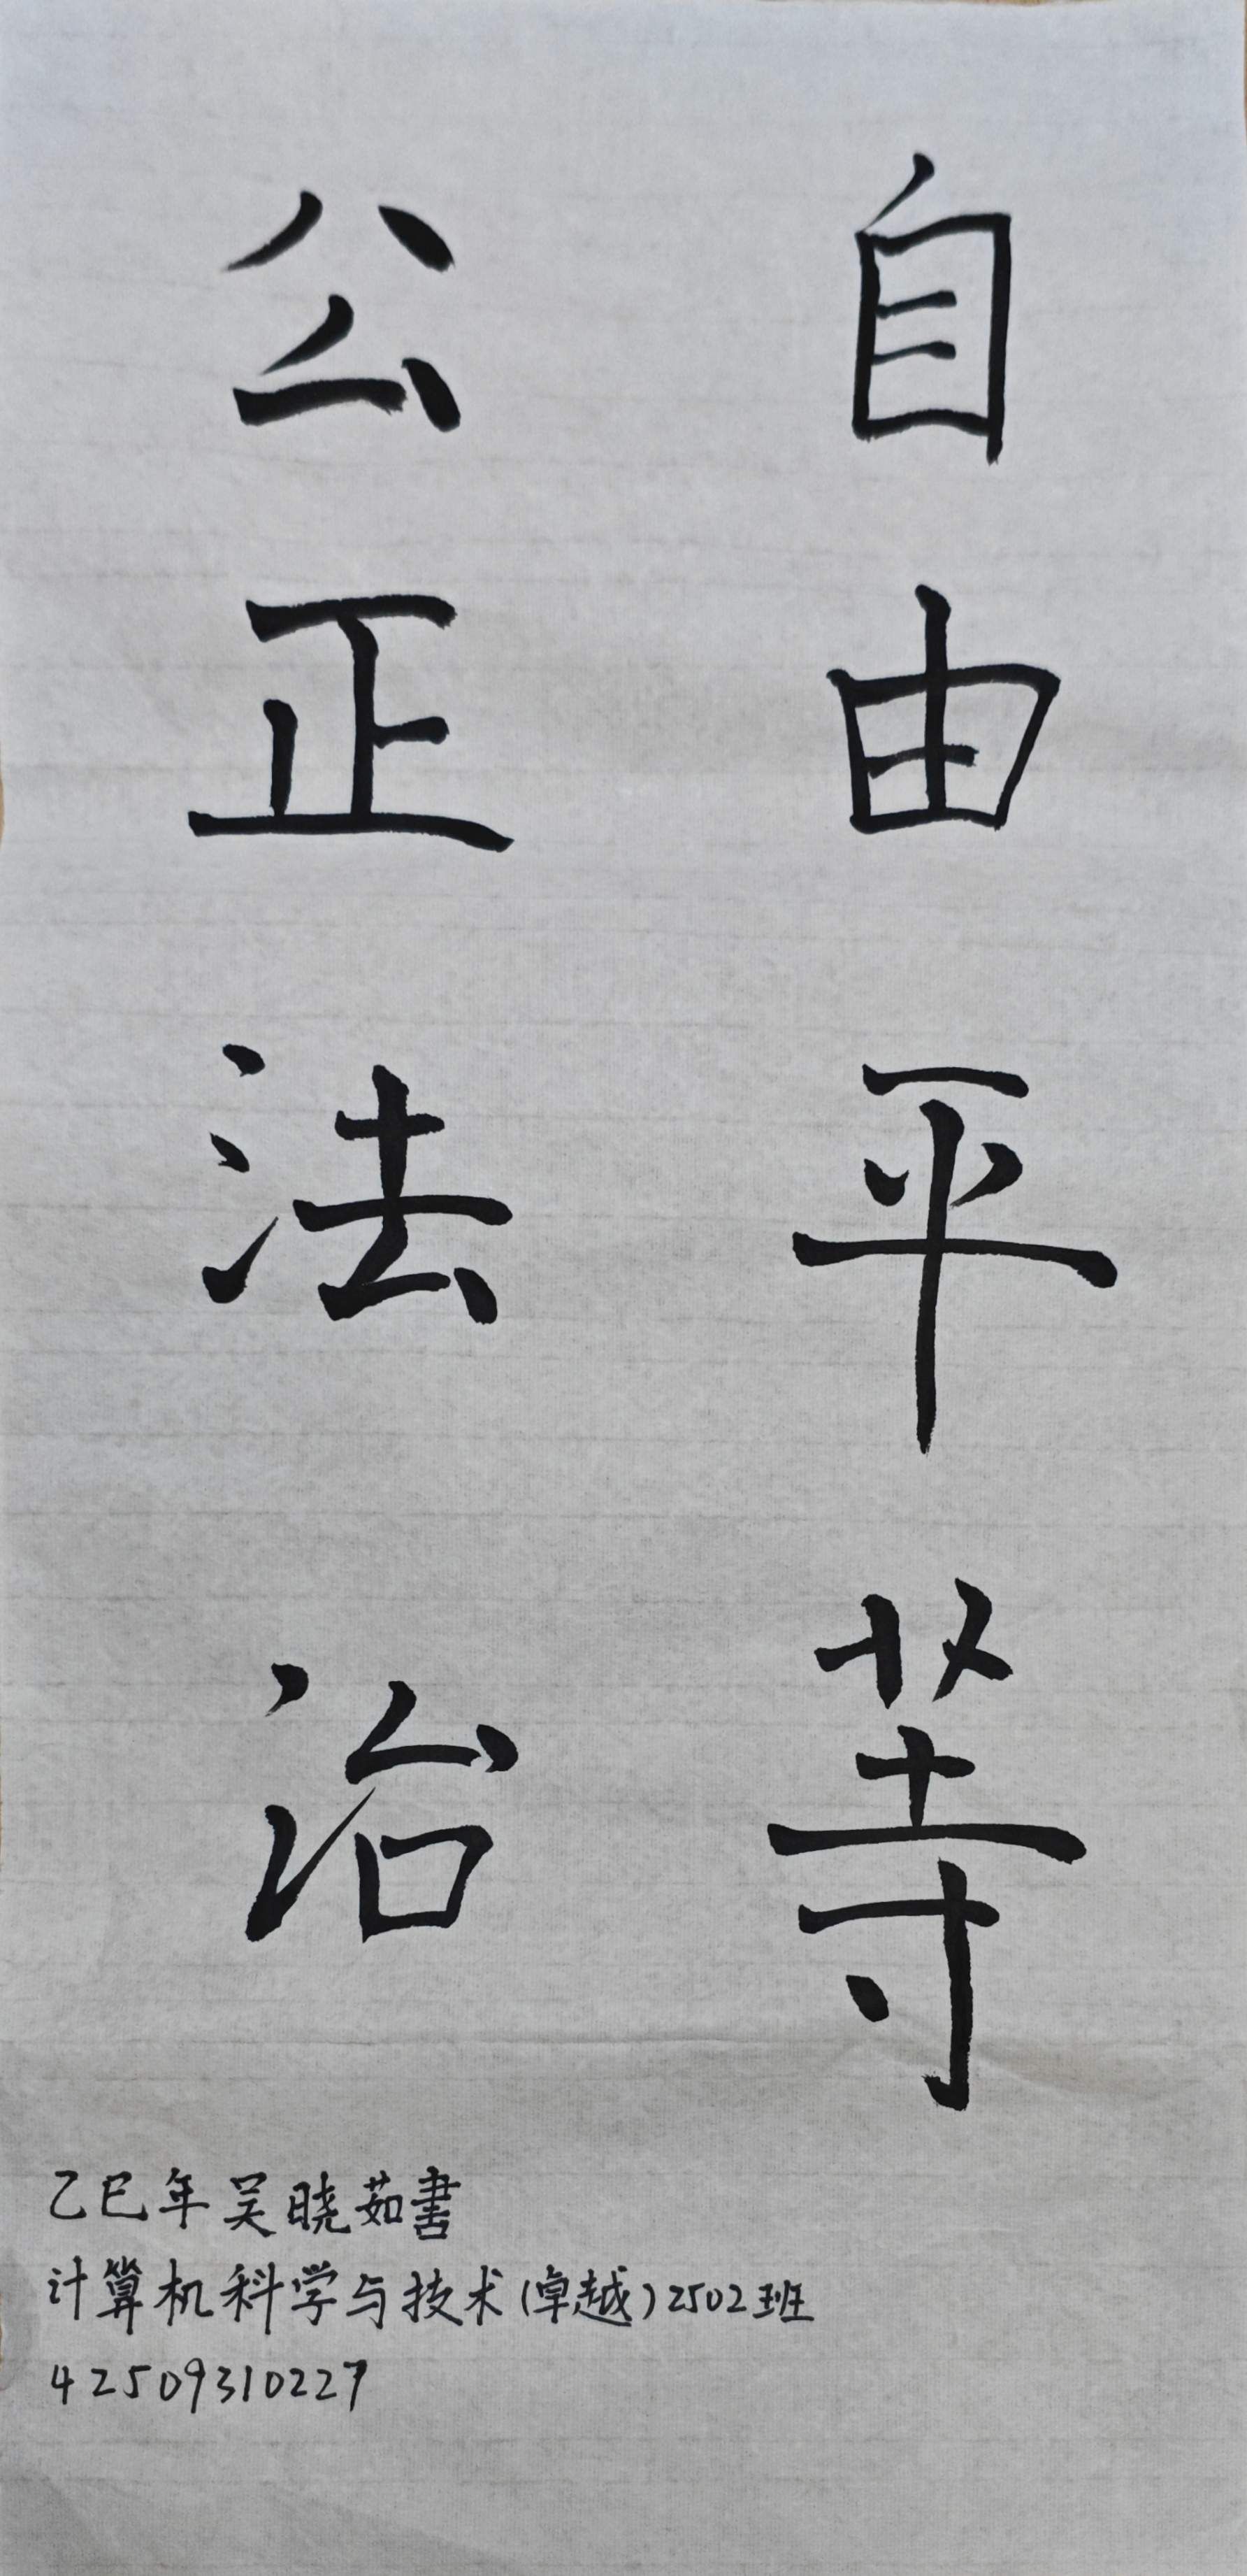 自由平等
公正法治
乙巳年吴晓茹書
计算机科学与技术(卓越)2502班
42509310227